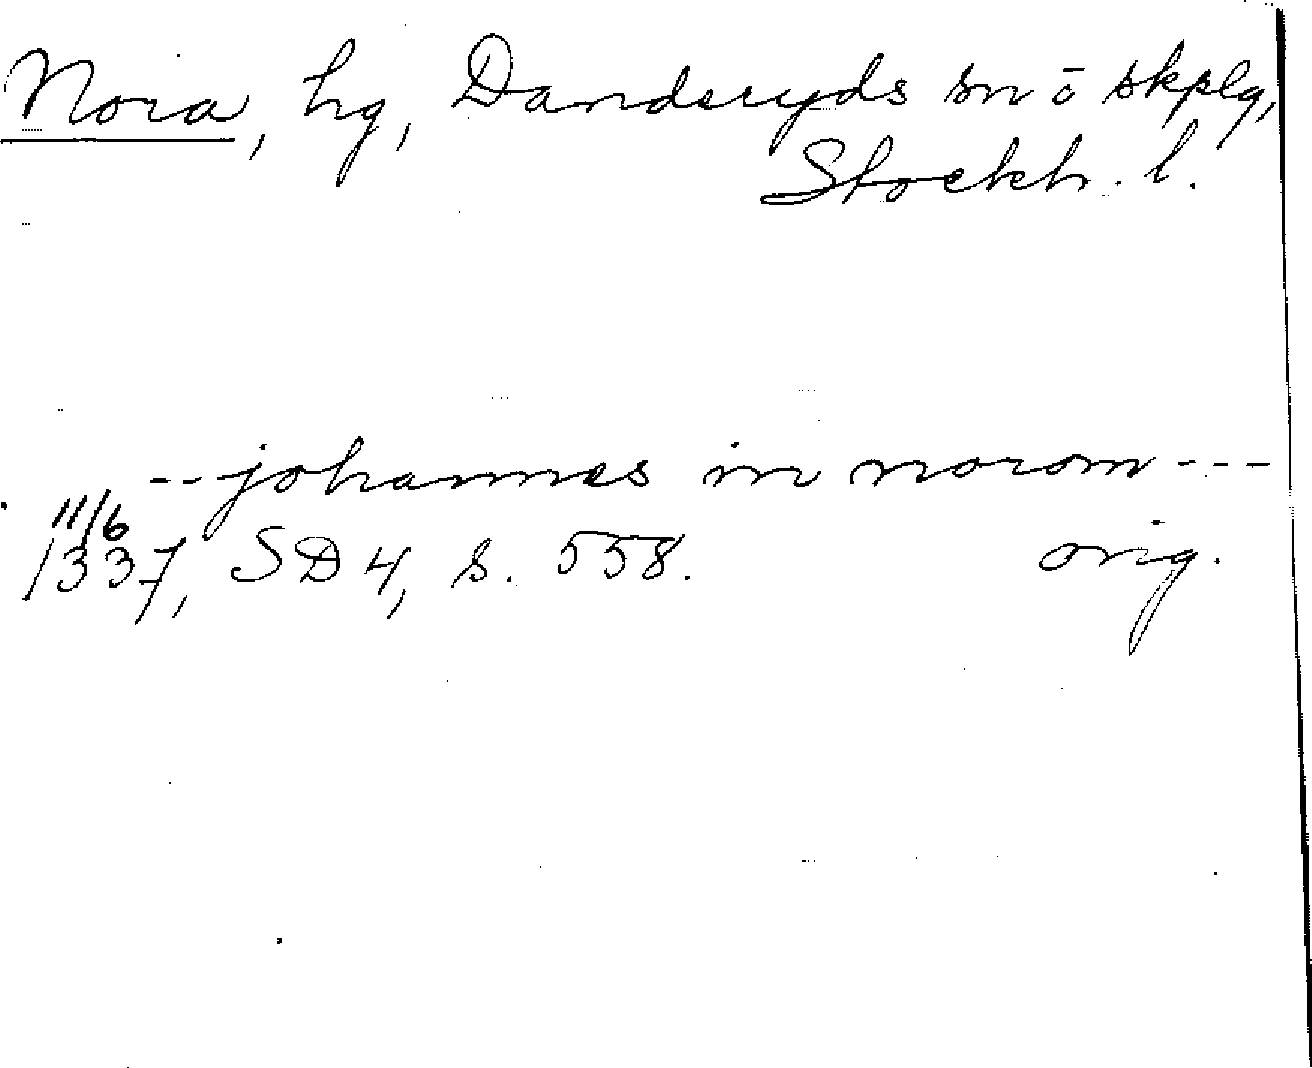 Nora, hg, Danderyds sn ō skplg,
Stockh. l.
-- johannes in norom ---
11/6
1337, SD 4, s. 558. orig.